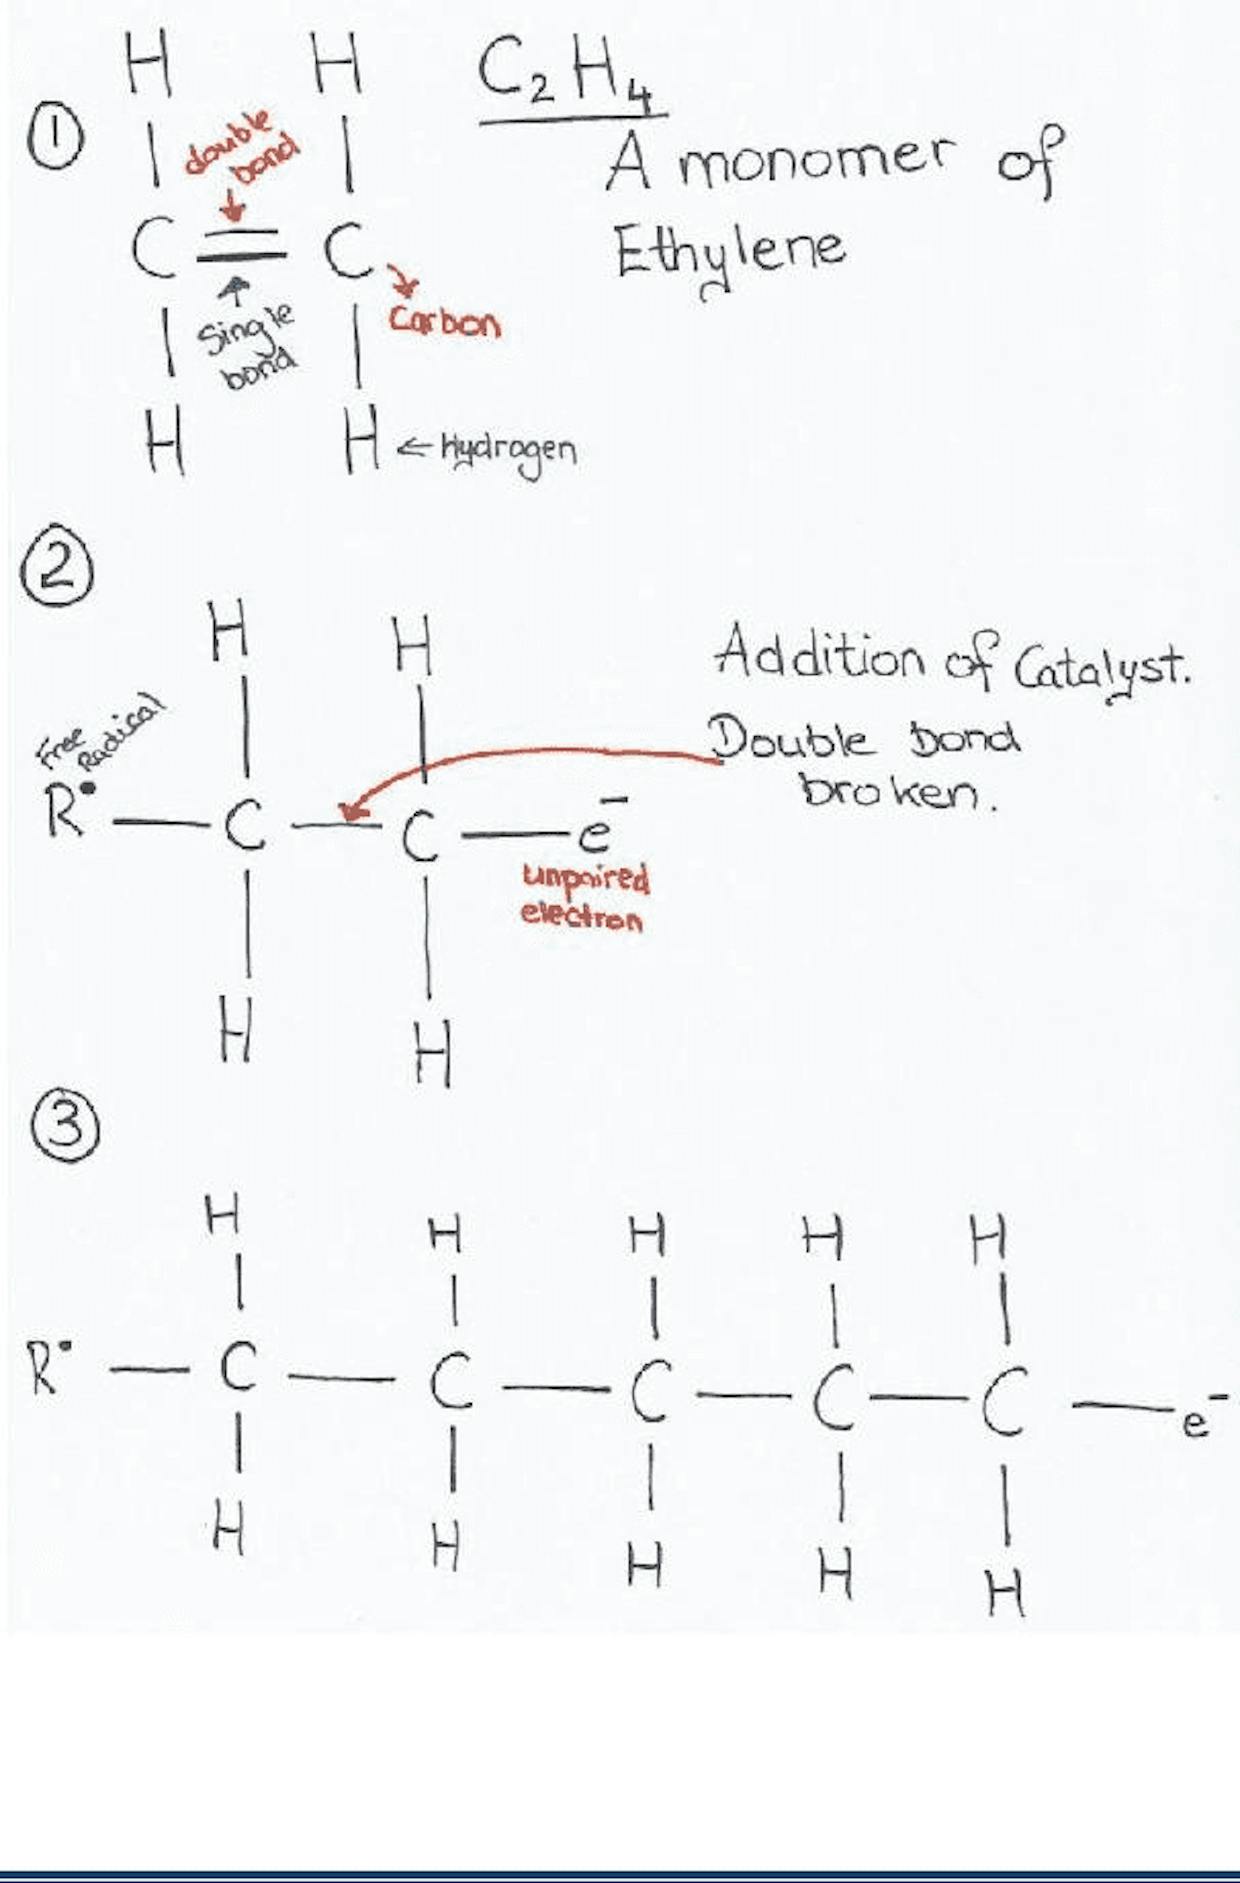 H H C2H4
1 double A monomer of
bond
C = C Ethylene
Single Carbon
bond
H H ← Hydrogen
2
H H Addition of Catalyst.
Free Radical Double bond
broken.
R• — C — C — e⁻
unpaired
electron
H H
3
H H H H H
R• — C — C — C — C — C — e⁻
H H H H H